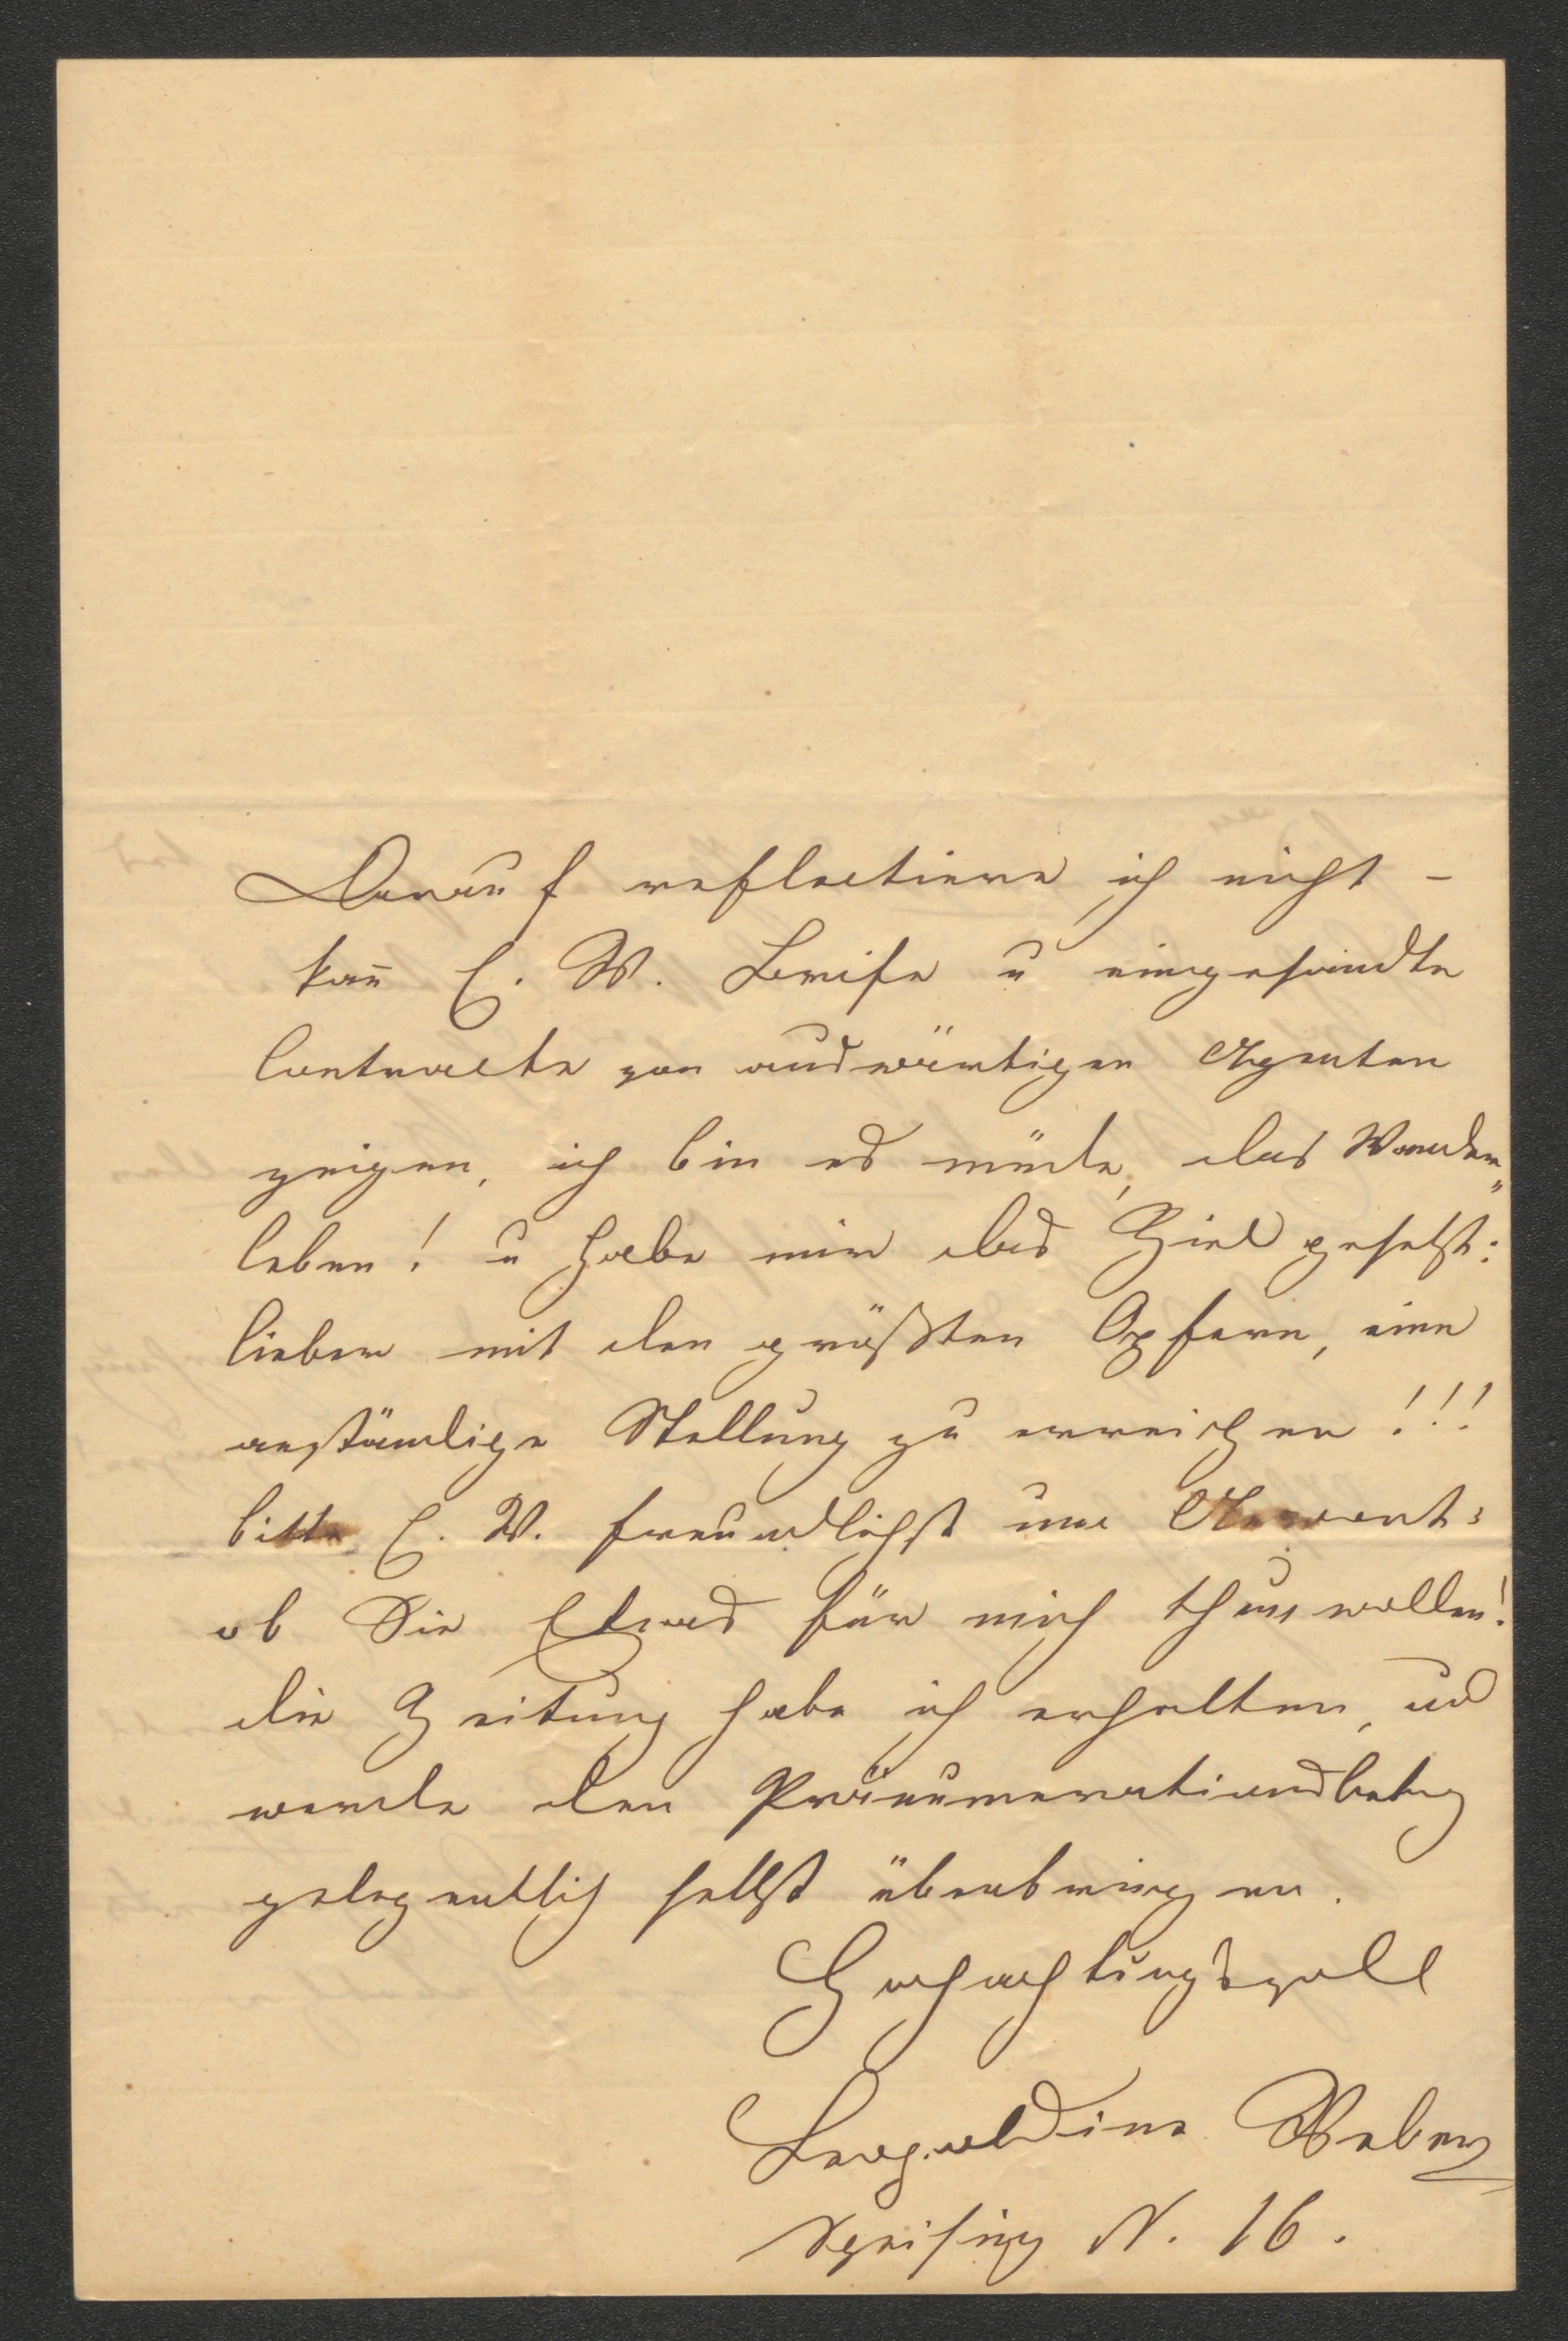 Darauf reflectiere ich nicht –
kañ E. W. Briefe u eingesandte
Contracte von auswärtigen Agenten
zeigen, ich bin es müde, das Wander„
leben! u habe mir das Ziel gesetzt:
lieber mit den größten Opfern, eine
anständige Stellung zu erreichen!!!
bitte E. W. freundlichst um Antwort:
ob Sie Etwas für mich thun wollen!
die Zeitung habe ich erhalten, und
werde den Pränumerationsbetrag
gelegentlich selbst überbringen.
Hochachtungsvoll
Leopoldine Weber
Speising N. 16.